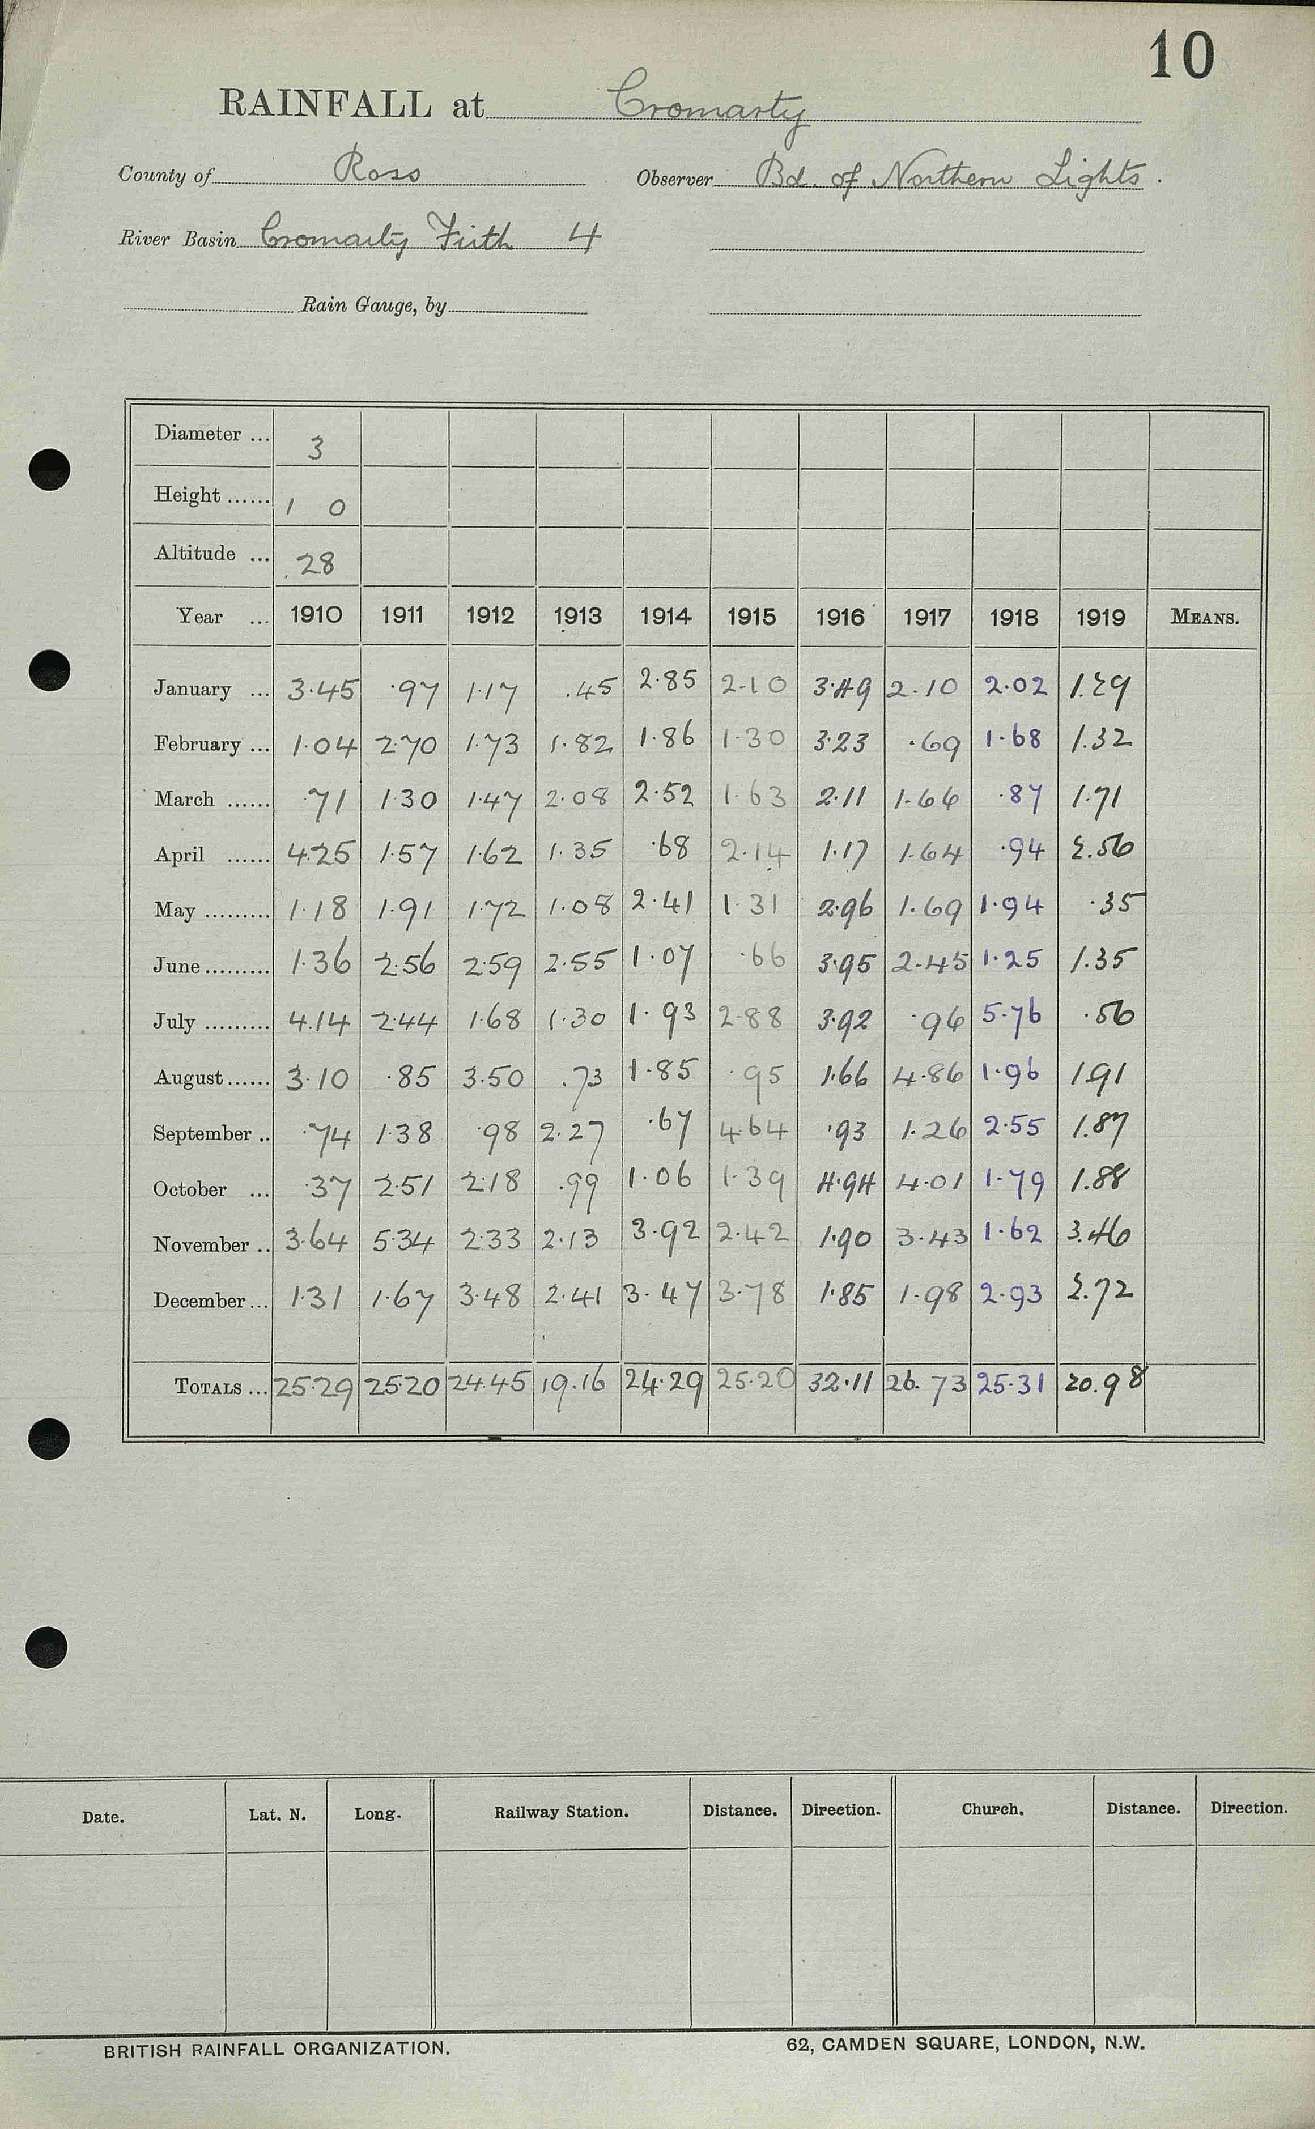 10
RAINFALL at Cromarty
County of Ross Observer Bd. of Northern Lights.
River Basin Cromarty Firth 4
Rain Gauge, by
Diameter ... 3
Height ...... 1 0
Altitude ... 28
Year ... 1910 1911 1912 1913 1914 1915 1916 1917 1918 1919 MEANS.
January ... 3.45 .97 1.17 .45 2.85 2.10 3.49 2.10 2.02 1.29
February ... 1.04 2.70 1.73 1.82 1.86 1.30 3.23 .69 1.68 1.32
March ...... .71 1.30 1.47 2.08 2.52 1.63 2.11 1.66 .87 1.71
April ...... 4.25 1.57 1.62 1.35 .68 2.14 1.17 1.64 .94 2.56
May ......... 1.18 1.91 1.72 1.08 2.41 1.31 2.96 1.69 1.94 .35
June ......... 1.36 2.56 2.59 2.55 1.07 .66 3.95 2.45 1.25 1.35
July ......... 4.14 2.44 1.68 1.30 1.93 2.88 3.92 .96 5.76 .56
August ...... 3.10 .85 3.50 .73 1.85 .95 1.66 4.86 1.96 1.91
September .. .74 1.38 .98 2.27 .67 4.64 .93 1.26 2.55 1.87
October ... .37 2.51 2.18 .99 1.06 1.39 4.94 4.01 1.79 1.88
November .. 3.64 5.34 2.33 2.13 3.92 2.42 1.90 3.43 1.62 3.46
December ... 1.31 1.67 3.48 2.41 3.47 3.78 1.85 1.98 2.93 2.72
TOTALS ... 25.29 25.20 24.45 19.16 24.29 25.20 32.11 26.73 25.31 20.98
Date. Lat. N. Long. Railway Station. Distance. Direction. Church. Distance. Direction.
BRITISH RAINFALL ORGANIZATION. 62, CAMDEN SQUARE, LONDON, N.W.